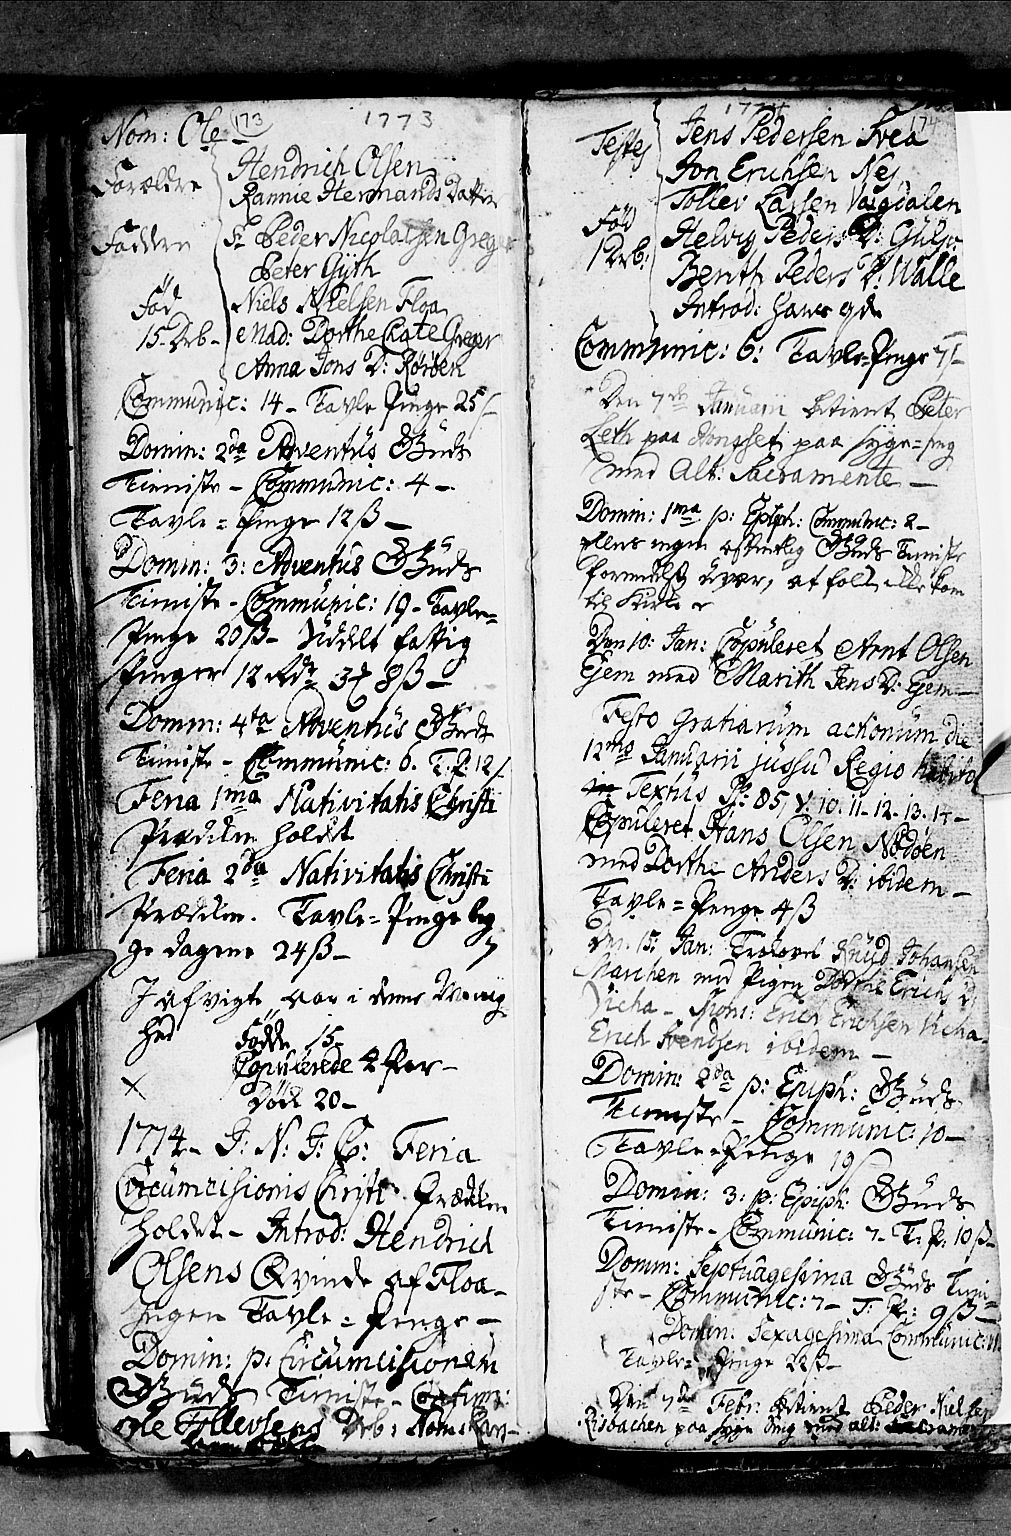 173
1773
Nom: Ole
Forældre
Hendrich Olsen
Rannie Hermands Datter
Faddere
Sr Peder Nicolaisen Greger
Peter Gÿth
Fød
Niels Nielsen Floa
15 Drb -
Mad: Dorthe Cate Greger
Anna Jons D: Rösöen
Communic: 14 - Tavle Penge 25 ß
Domin: 2da Adventüs Güds
Tieniste - Communic: 4 -
Tavle = Penge 12 ß -
Domin: 3: Adventüs Güds
Tieniste - Communic: 19 - Tavle =
Penge 20 ß - Üddelt fattig
Penger 12 Rdr 3 8 ß -
Domin: 4ta Adventüs Güds
Tieniste - Communic: 6. T: P: 12 ß
Feria 1ma Nativitatis Christi
Prædiken holdt
Feria 2da Nativitatis Christi
Prædiken. Tavle = Penge beg
ge dagene 24 ß -
I afvigte aar i denne Menig
hed Födde 15 -
Copulerede 2 Par -
Död 20 -
1774 - I: N: J: C: Feria
Circümcisionis Christi Prædiken
holdet - Introd: Hendrich
Olsens Qvinde af Floa -
Ingen Tavle = Penge -
Domin: p: Circümcisionem
Güds Tieniste -
Ole Tollevsens Drb: Nom:
1774
174
Testes
Jens Pedersen Svea
Jon Erichsen Nes
Tollev Larsen Vaigdalen
Fød
1 Drb:
Helvig Peders D: Gülse
Berith Peders D: Walle
Introd: hans
Communic: 6: Tavle Penge 7 ß
Den 7de Januarii betient Peter
Leth paa Hongset paa syge = seng
med Alt: Sacramente -
Domin: 1ma p: Epiph: Communic: 2 -
ellers ingen offentlig Güds Tieniste
formedelst üveir, at folk icke kom
til Kirke
Den 10: Jan: Copüleret Arnt Olsen
Gjem med Marith Jens D: Gjem -
Festo gratiarüm actionum die
12mo Januarii jussu Regio habito
Textus Ps: 85, v: 10. 11. 12. 13. 14 -
Copuleret Hans Olsen Nödöen
med Dorthe Anders D: ibidem -
Tavle = Penge 4 ß
Den 15: Jan: Trolovet Knüd Johansen
Marschen med Pigen Dorthe Erich D:
Vicha - Spons: Erich Erichsen Vicha -
Erich Svendsen ibidem -
Domin: 2da p: Epiph: Güds
Tieniste - Communic: 10 -
Tavle = Penge 19 ß
Domin: 3: p: Epiph: Güds
Tieniste - Communic: 7 - T: P: 10 ß -
Domin: Septuagesima Güds Tieni =
ste - Communic: 7 - T: P: 9 ß -
Domin: Sexagesima Communic: 11
Tavle = Penge 22 ß -
Den 7de Febr: betient Peder Nielsen
Risbachen paa syge Seng med alt: